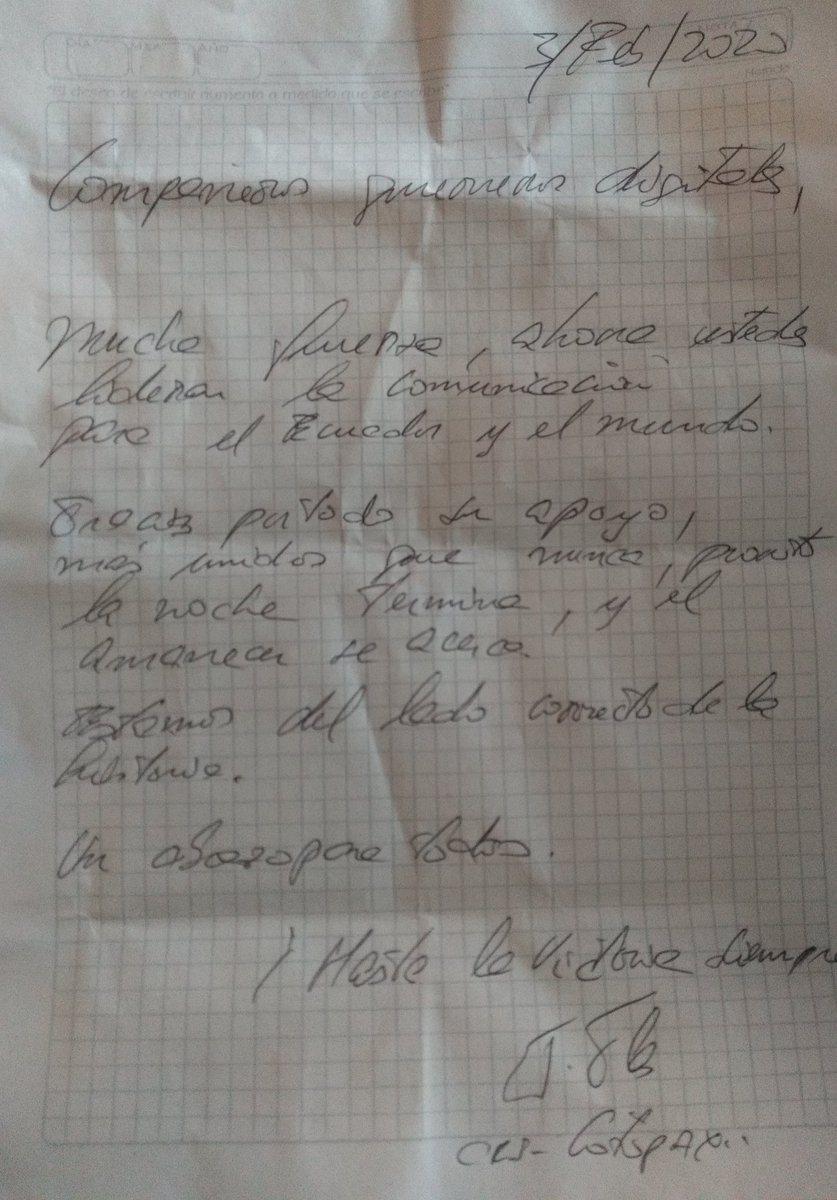 3/Feb/2020
DÍA MES AÑO
"El deseo de escribir aumenta a medida que se escribe"
Compañeros guerreros digitales,
mucha fuerza, ahora ustedes
lideran la comunicación
para el Ecuador y el mundo.
Gracias por todo su apoyo,
más unidos que nunca, pronto
la noche termina, y el
amanecer se acerca.
Estamos del lado correcto de la
historia.
Un abrazo para todos.
¡Hasta la victoria siempre
CRS- Cotopaxi..